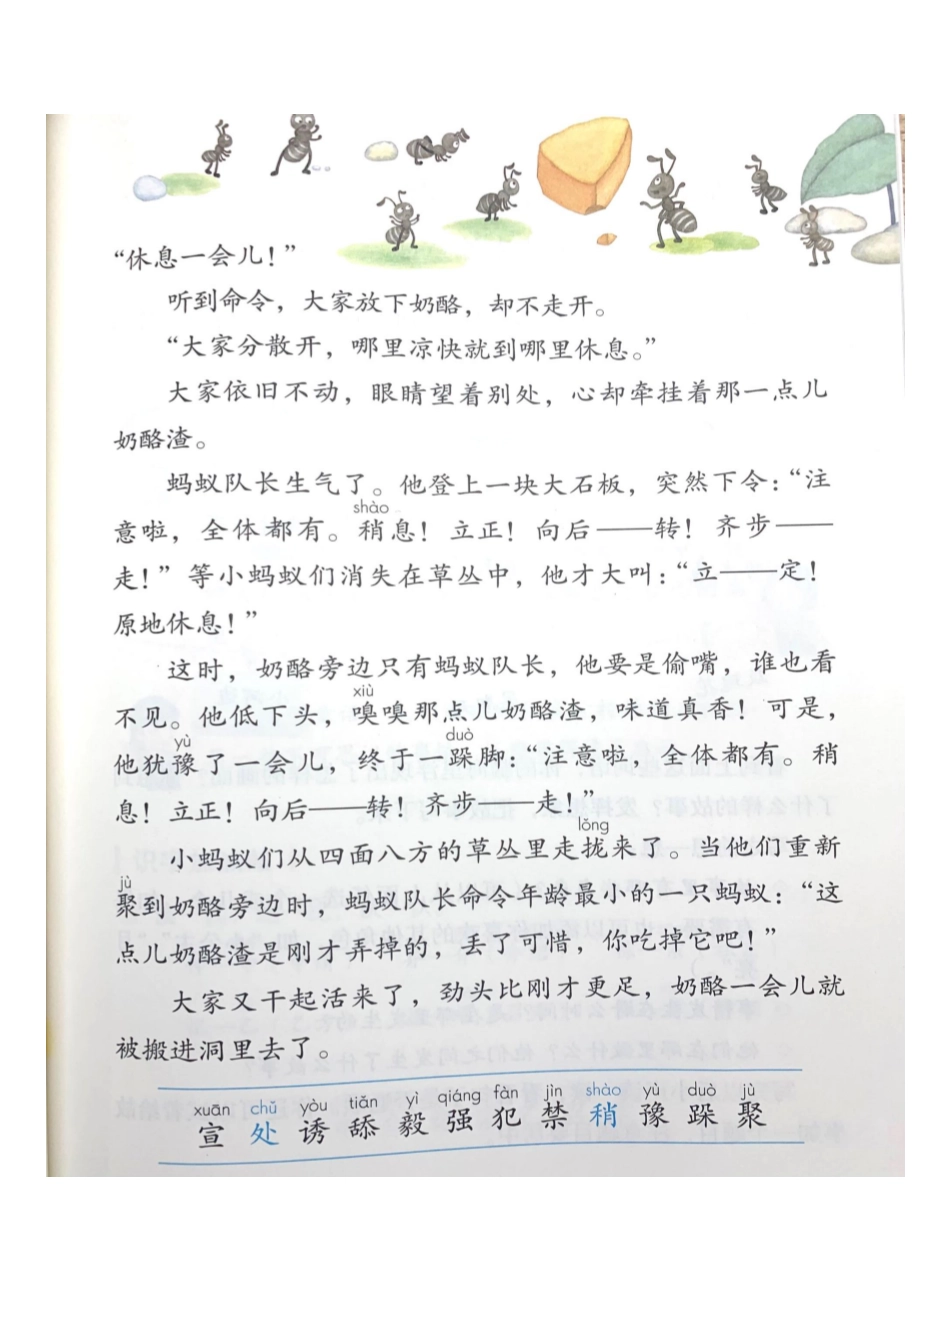 “休息一会儿！”
听到命令，大家放下奶酪，却不走开。
“大家分散开，哪里凉快就到哪里休息。”
大家依旧不动，眼睛望着别处，心却牵挂着那一点儿
奶酪渣。
蚂蚁队长生气了。他登上一块大石板，突然下令：“注
shào
意啦，全体都有。稍息！立正！向后——转！齐步——
走！”等小蚂蚁们消失在草丛中，他才大叫：“立——定！
原地休息！”
这时，奶酪旁边只有蚂蚁队长，他要是偷嘴，谁也看
xiù
不见。他低下头，嗅嗅那点儿奶酪渣，味道真香！可是，
yù duò
他犹豫了一会儿，终于一跺脚：“注意啦，全体都有。稍
息！立正！向后——转！齐步——走！”
lǒng
小蚂蚁们从四面八方的草丛里走拢来了。当他们重新
jù
聚到奶酪旁边时，蚂蚁队长命令年龄最小的一只蚂蚁：“这
点儿奶酪渣是刚才弄掉的，丢了可惜，你吃掉它吧！”
大家又干起活来了，劲头比刚才更足，奶酪一会儿就
被搬进洞里去了。
xuān chǔ yòu tiǎn yì qiáng fàn jìn shào yù duò jù
宣 处 诱 舔 毅 强 犯 禁 稍 豫 跺 聚